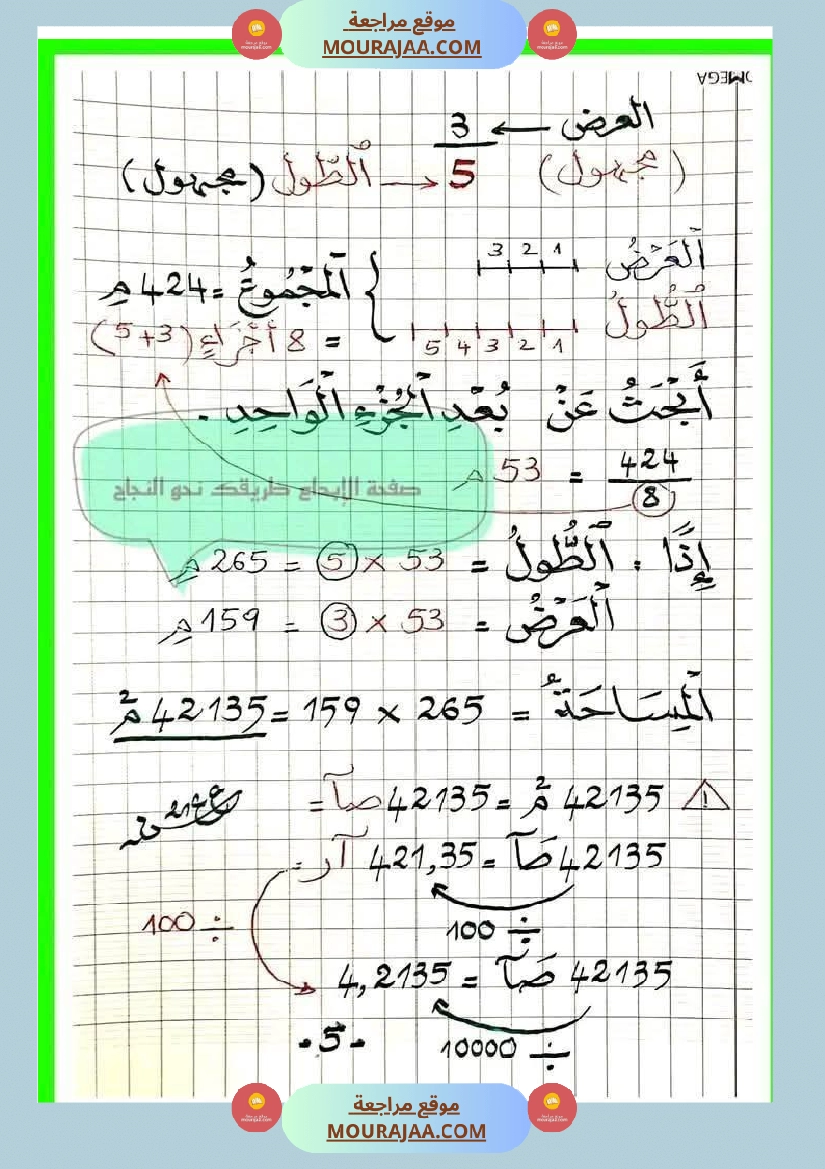 موقع مراجعة
MOURAJAA.COM
OMEGA
العرض ← 3
(مجهول) 5 ← ٱلطّول (مجهول)
ٱلْعَرْضُ 1 2 3
ٱلْمَجْمُوعُ = 424 م
ٱلطُّولُ 1 2 3 4 5
= 8 أَجْزَاءٍ (3+5)
أَبْحَثُ عَنْ بُعْدِ ٱلْجُزْءِ ٱلْوَاحِدِ.
424/8 = 53 م
صفحة الإبداع طريقك نحو النجاح
إِذًا : ٱلطُّولُ = 53 × 5 = 265 م
ٱلْعَرْضُ = 53 × 3 = 159 م
ٱلْمِسَاحَةُ = 265 × 159 = 42135 م²
42135 م² = 42135 صآ =
42135 صَآ = 421,35 آر =
÷ 100
÷ 100
42135 صَآ = 4,2135
÷ 10000
-5-
موقع مراجعة
MOURAJAA.COM